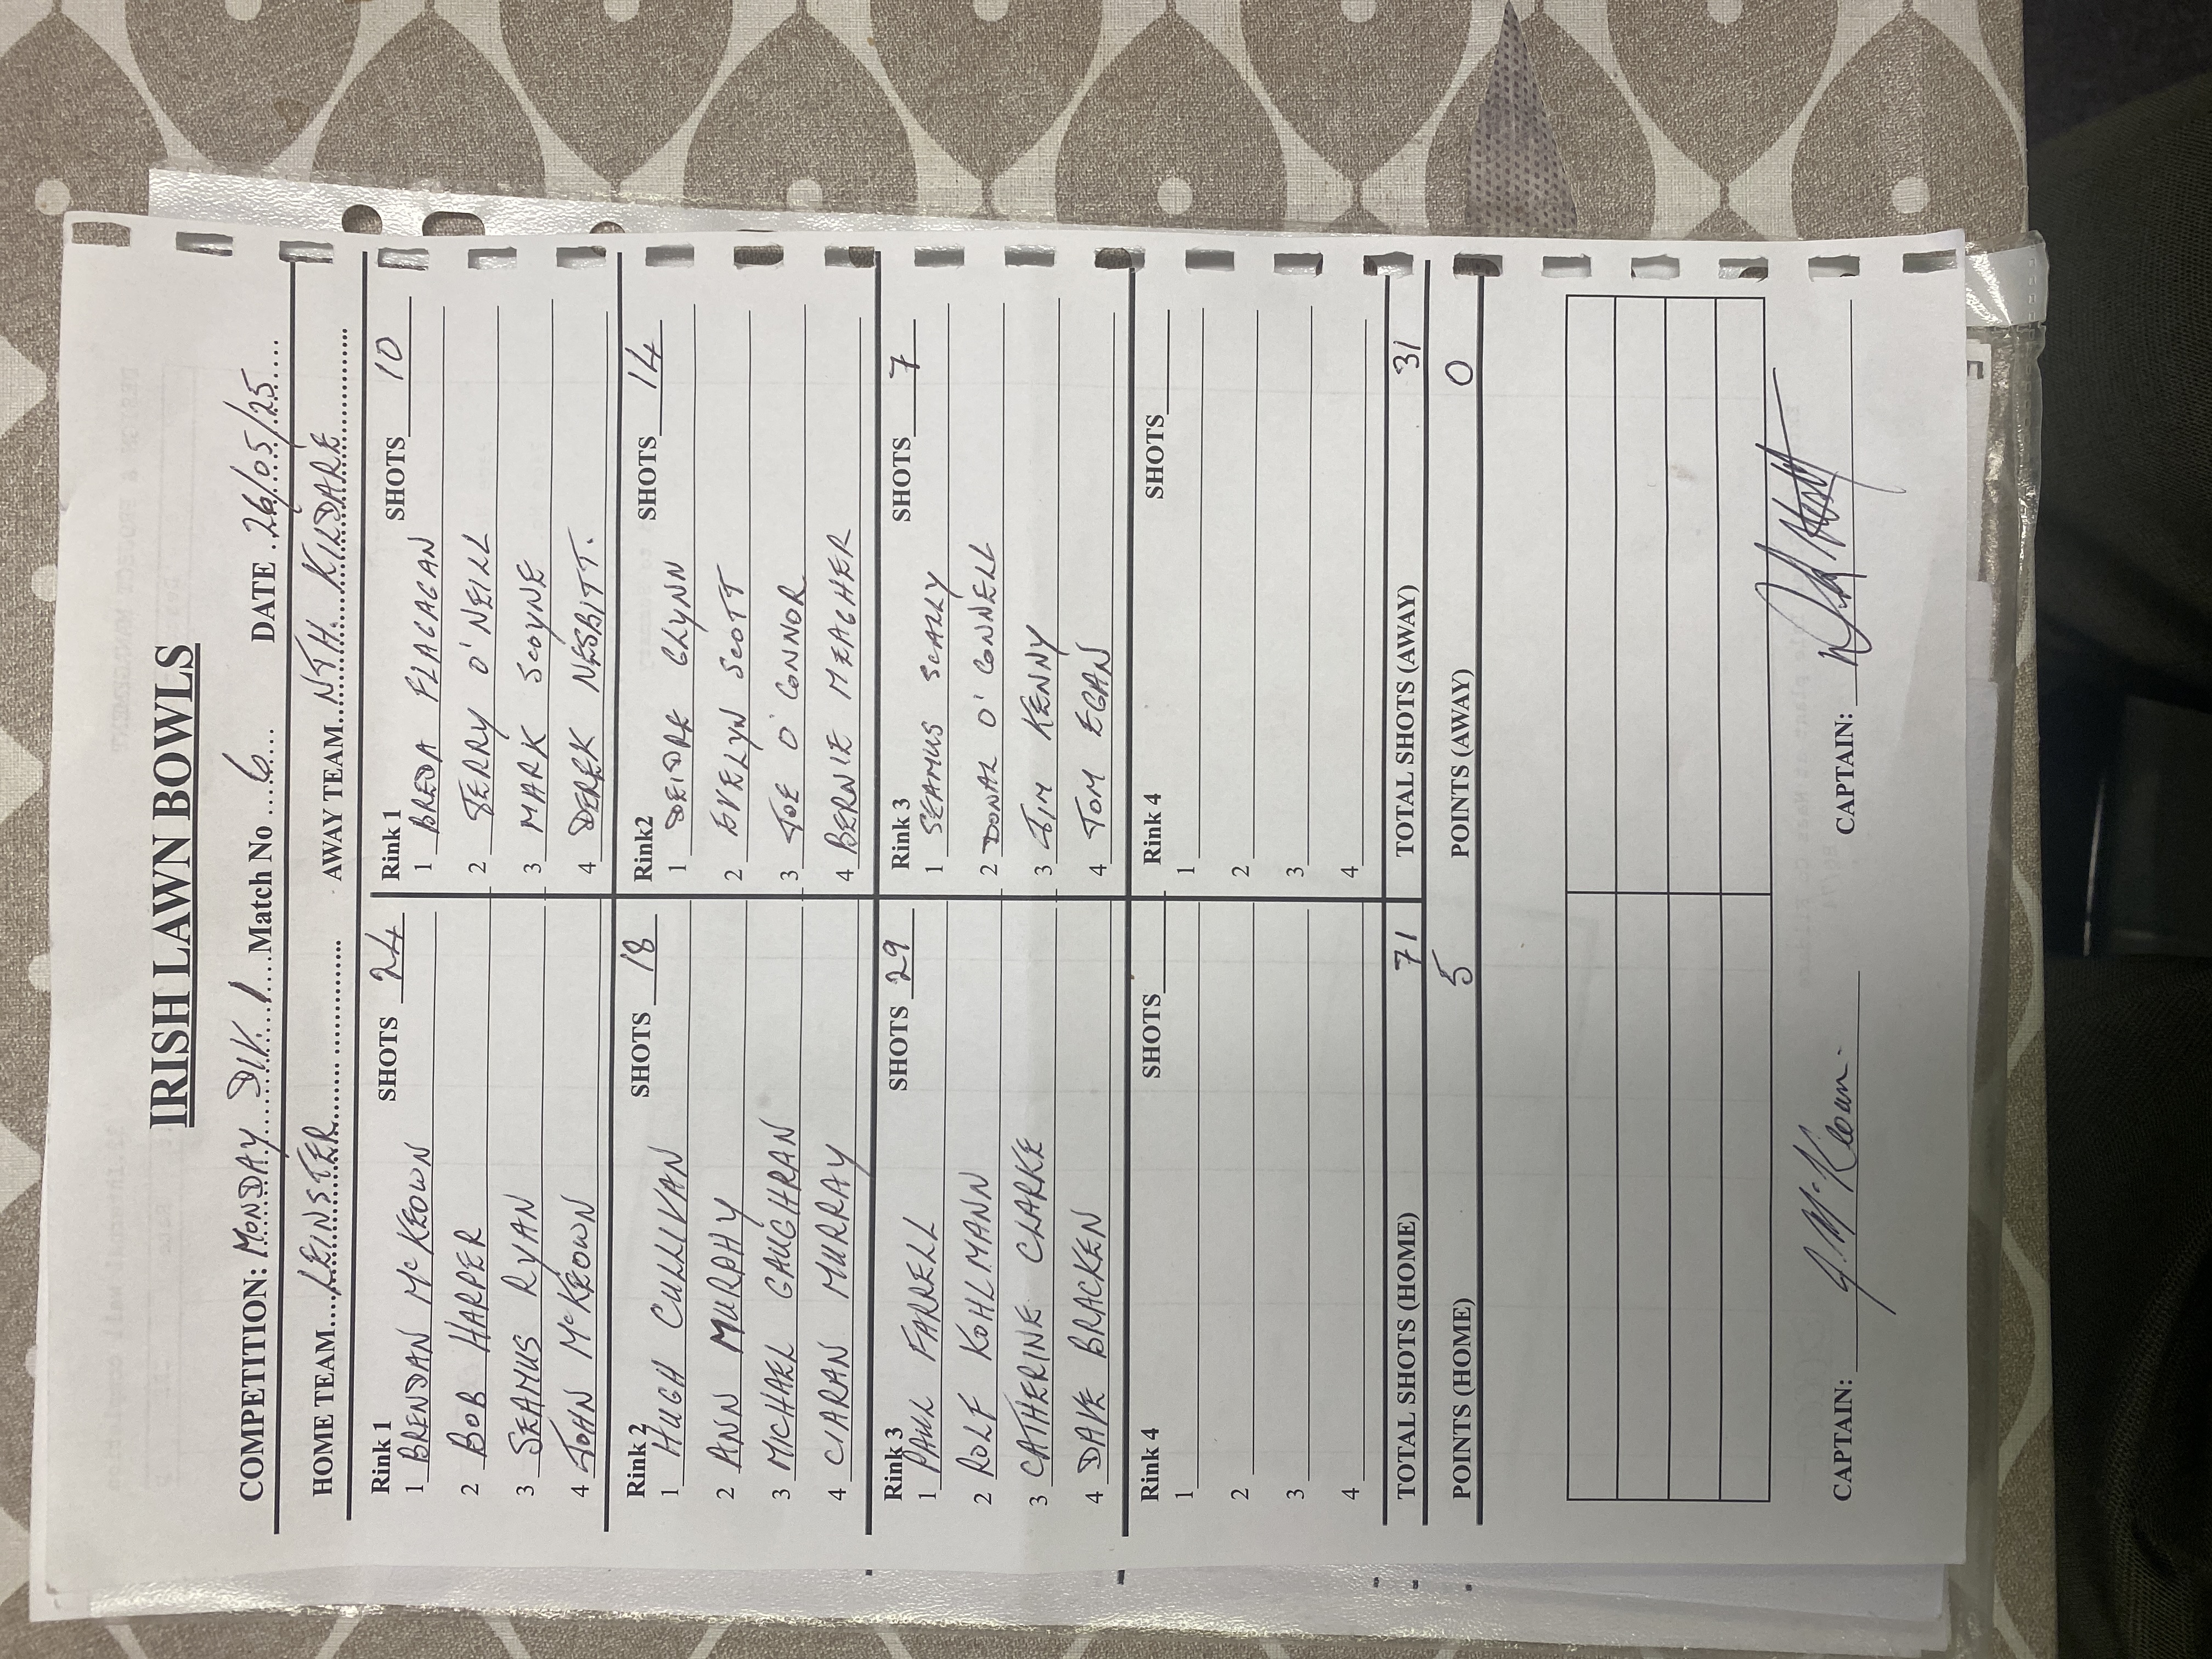 IRISH LAWN BOWLS
COMPETITION: MONDAY DIV. 1 Match No 6 DATE 26/05/25
HOME TEAM LEINSTER AWAY TEAM NTH. KILDARE
Rink 1 SHOTS 24 Rink 1 SHOTS 10
1 BRENDAN McKEOWN 1 BREDA FLAGAGAN
2 BOB HARPER 2 TERRY O'NEILL
3 SEAMUS RYAN 3 MARK SCOYNE
4 JOHN McKEOWN 4 DEREK NESBITT.
Rink 2 SHOTS 18 Rink2 SHOTS 14
1 HUGH CULLIVAN 1 DEIDRE GLYNN
2 ANN MURPHY 2 EVELYN SCOTT
3 MICHAEL GAUGHRAN 3 JOE O'CONNOR
4 CIARAN MURRAY 4 BERNIE MEAGHER
Rink 3 SHOTS 29 Rink 3 SHOTS 7
1 PAUL FARRELL 1 SEAMUS SCALLY
2 ROLF KOHLMANN 2 DONAL O'CONNELL
3 CATHERINE CLARKE 3 JIM KENNY
4 DAVE BRACKEN 4 TOM EGAN
Rink 4 SHOTS Rink 4 SHOTS
1 1
2 2
3 3
4 4
TOTAL SHOTS (HOME) 71 TOTAL SHOTS (AWAY) 31
POINTS (HOME) 5 POINTS (AWAY) 0
CAPTAIN: J. McKeown CAPTAIN: